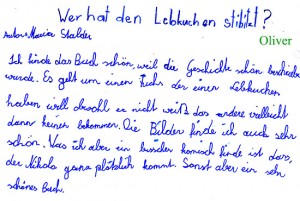 Wer hat den Lebkuchen stibitzt?
Oliver
Autor: Maria Stalder
Ich finde das Buch schön, weil die Geschichte schön beschrieben
wurde. Es geht um einen Fuchs der einen Lebkuchen
haben will obwohl er nicht weiß das andere vielleicht
dann keinen bekommen. Die Bilder finde ich auch sehr
schön. Was ich aber ein bisschen komisch finde ist dass,
der Nikolo ganz plötzlich kommt. Sonst aber ein sehr
schönes Buch.